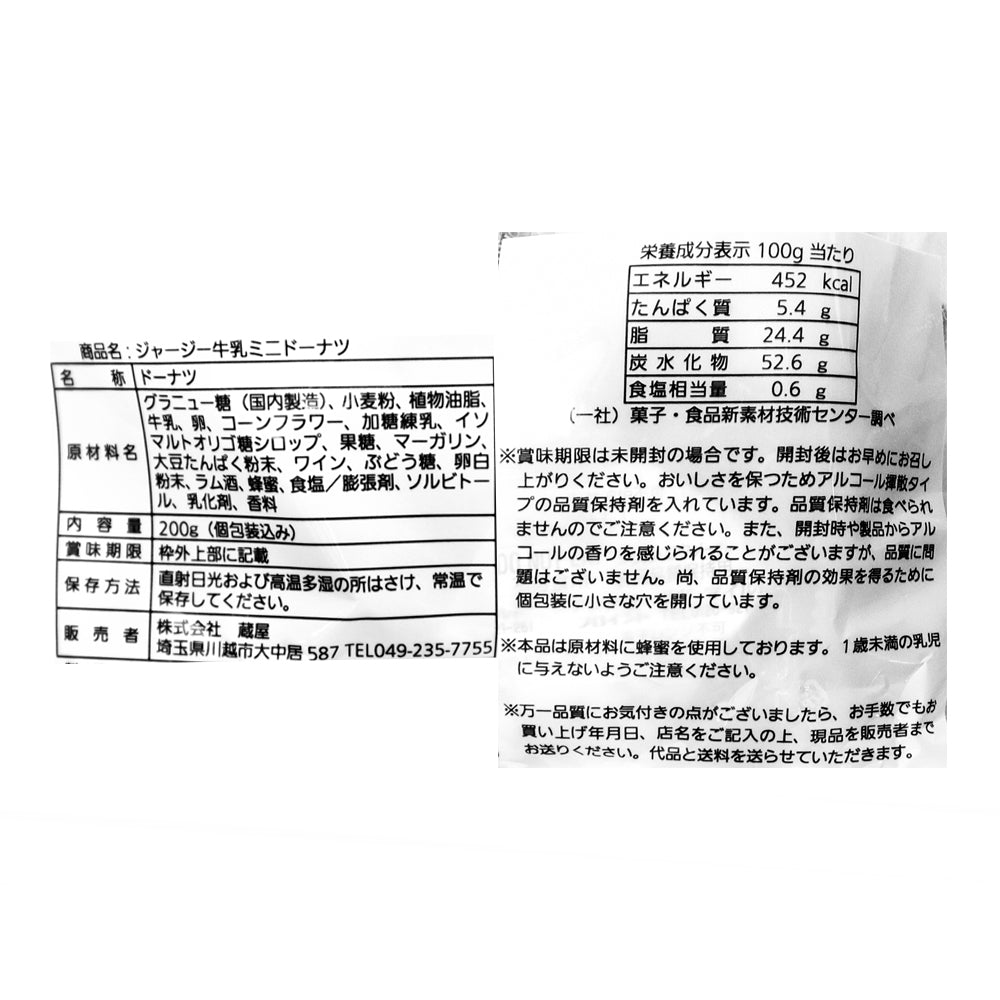 商品名：ジャージー牛乳ミニドーナツ
名称 ドーナツ
原材料名 グラニュー糖（国内製造）、小麦粉、植物油脂、
牛乳、卵、コーンフラワー、加糖練乳、イソ
マルトオリゴ糖シロップ、果糖、マーガリン、
大豆たんぱく粉末、ワイン、ぶどう糖、卵白
粉末、ラム酒、蜂蜜、食塩／膨張剤、ソルビトー
ル、乳化剤、香料
内容量 200g（個包装込み）
賞味期限 枠外上部に記載
保存方法 直射日光および高温多湿の所はさけ、常温で
保存してください。
販売者 株式会社 蔵屋
埼玉県川越市大中居587 TEL049-235-7755
栄養成分表示 100g当たり
エネルギー 452 kcal
たんぱく質 5.4 g
脂質 24.4 g
炭水化物 52.6 g
食塩相当量 0.6 g
（一社）菓子・食品新素材技術センター調べ
※賞味期限は未開封の場合です。開封後はお早めにお召し
上がりください。おいしさを保つためアルコール揮散タイ
プの品質保持剤を入れています。品質保持剤は食べられ
ませんのでご注意ください。また、開封時や製品からアル
コールの香りを感じられることがございますが、品質に問
題はございません。尚、品質保持剤の効果を得るために
個包装に小さな穴を開けています。
※本品は原材料に蜂蜜を使用しております。1歳未満の乳児
に与えないようご注意ください。
※万一品質にお気付きの点がございましたら、お手数でもお
買い上げ年月日、店名をご記入の上、現品を販売者まで
お送りください。代品と送料を送らせていただきます。